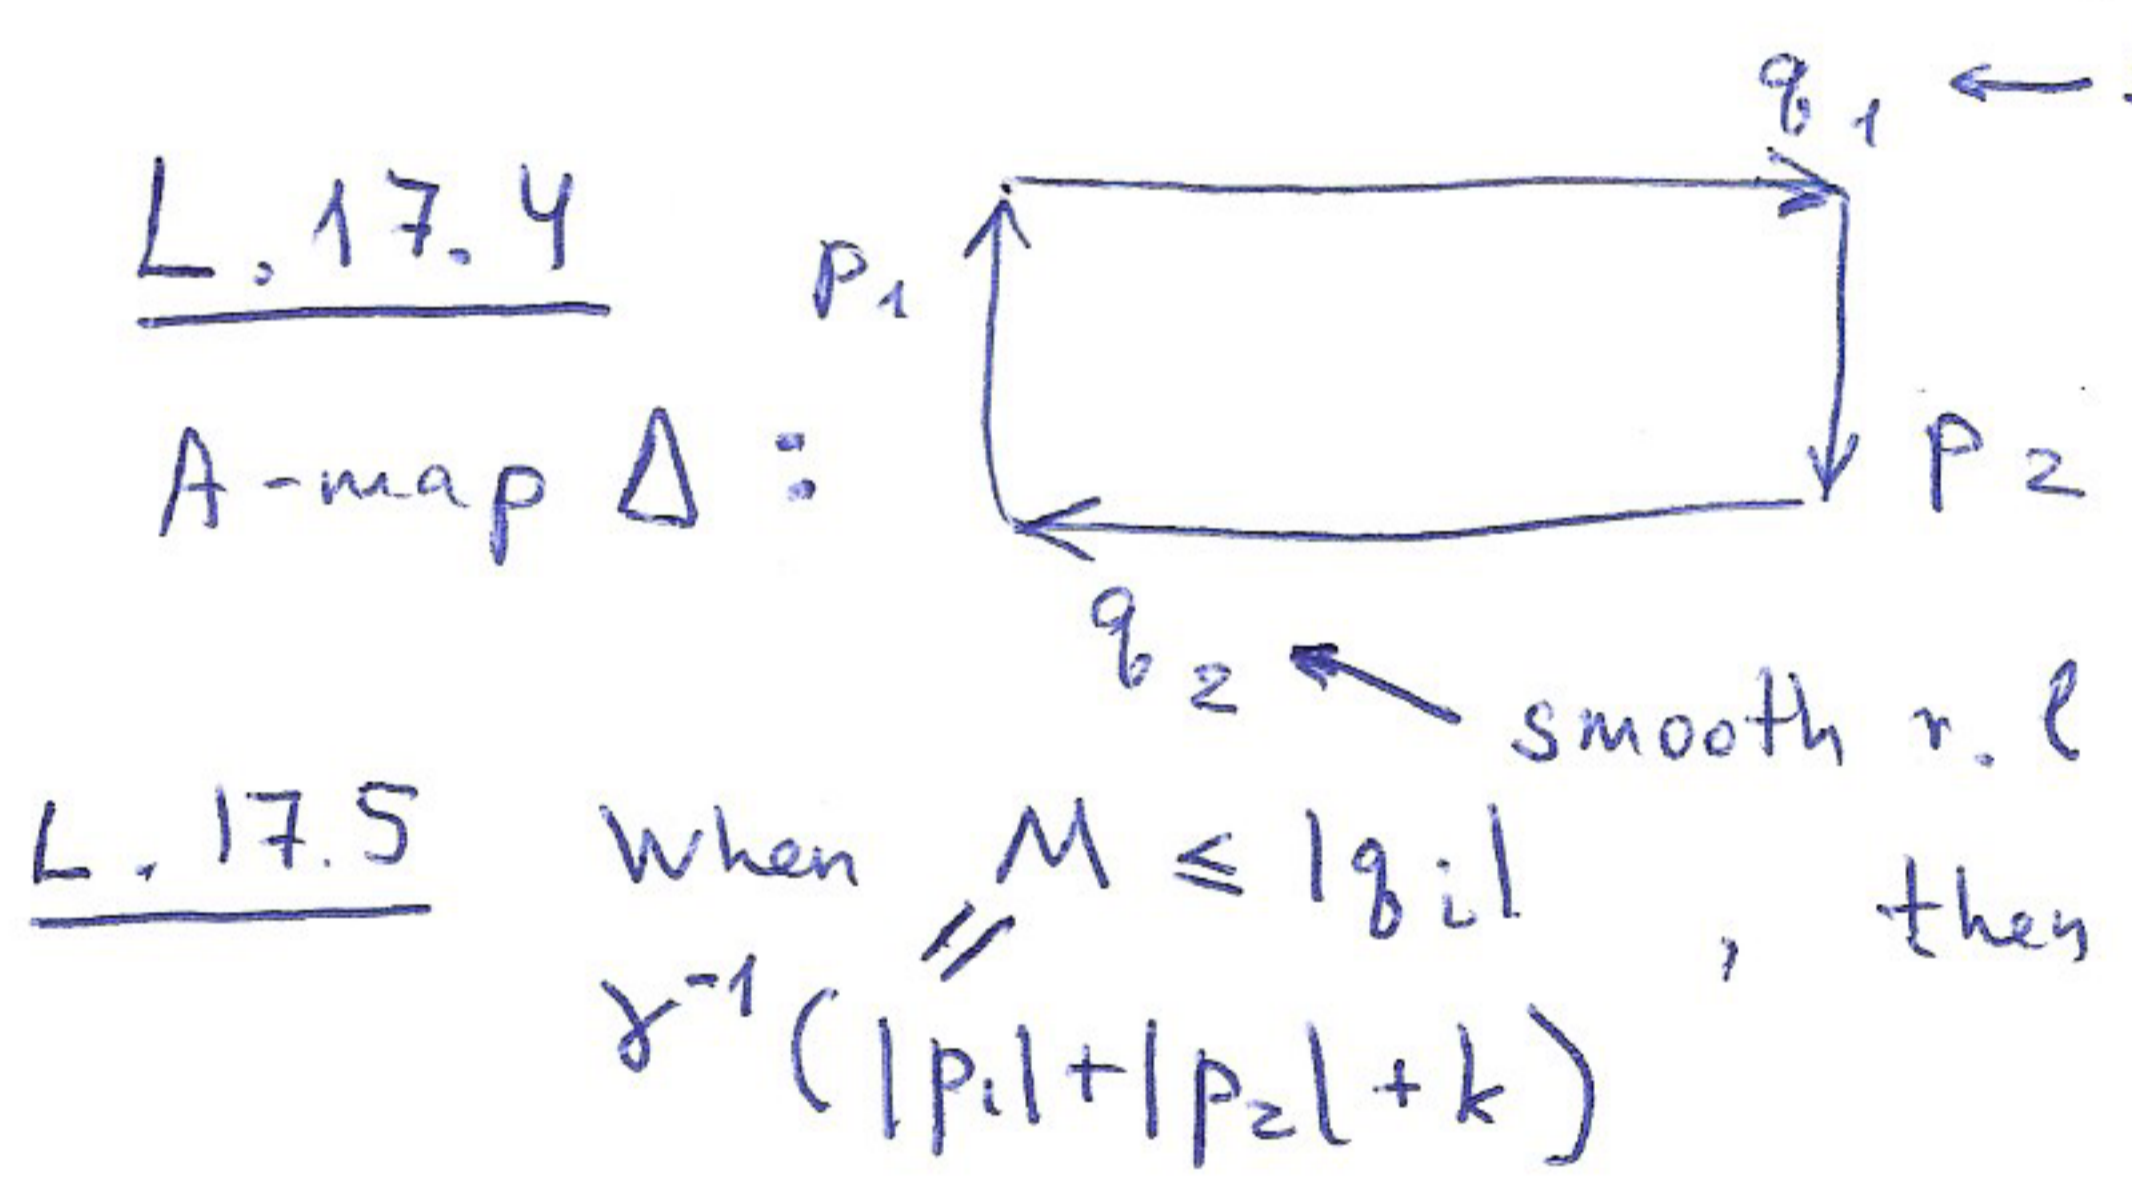 q₁ ←
L.17.4
p₁
A-map Δ :
p₂
q₂ ← smooth r. l
L. 17.5 When M ≤ |qᵢ| , then
=
γ⁻¹(|p₁|+|p₂|+k)